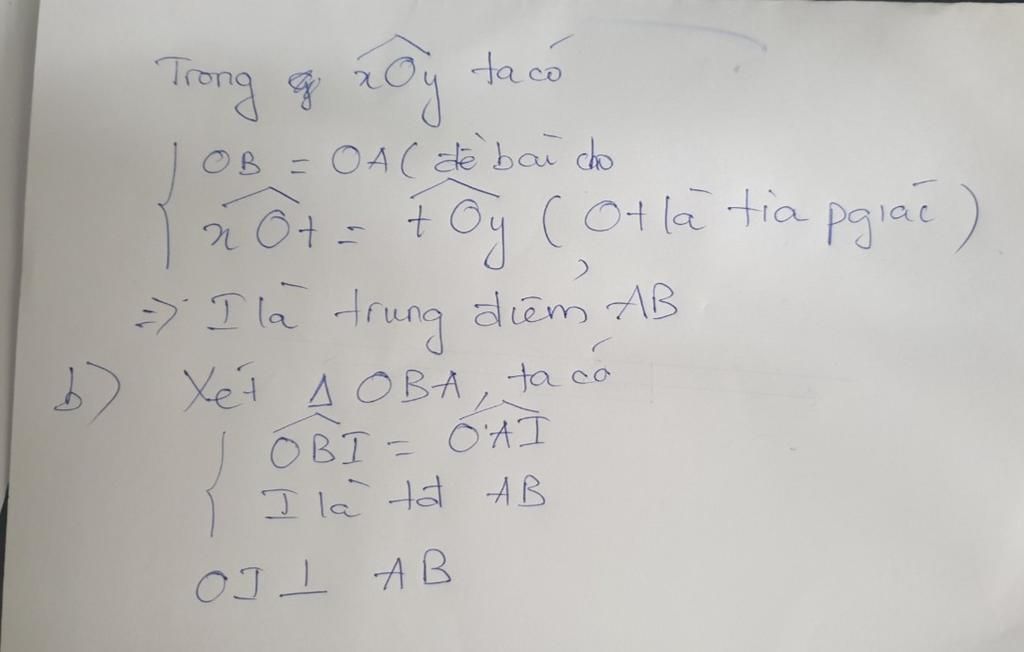 Trong xOy ta có
OB = OA ( đề bài cho
xOt = tOy ( Ot là tia pgiác )
=> I là trung điểm AB
b) Xét Δ OBA, ta có
OBI = OAI
I là tđ AB
OI ⊥ AB